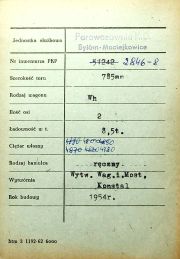 Jednostka służbowa Parowozownia
Bytom-Maciejkowice
Nr inwentarza PKP 51242 2846-8
Szerokość toru 785mm
Rodzaj wagonu Wh
Ilość osi 2
Ładowność w t. 8,5t.
Ciężar własny
4870
Rodzaj hamulca ręczny
Wytwórnia Wytw. Wag. i Most.
Konstal
Rok budowy 1954r.
htm 3 1192-62 6000